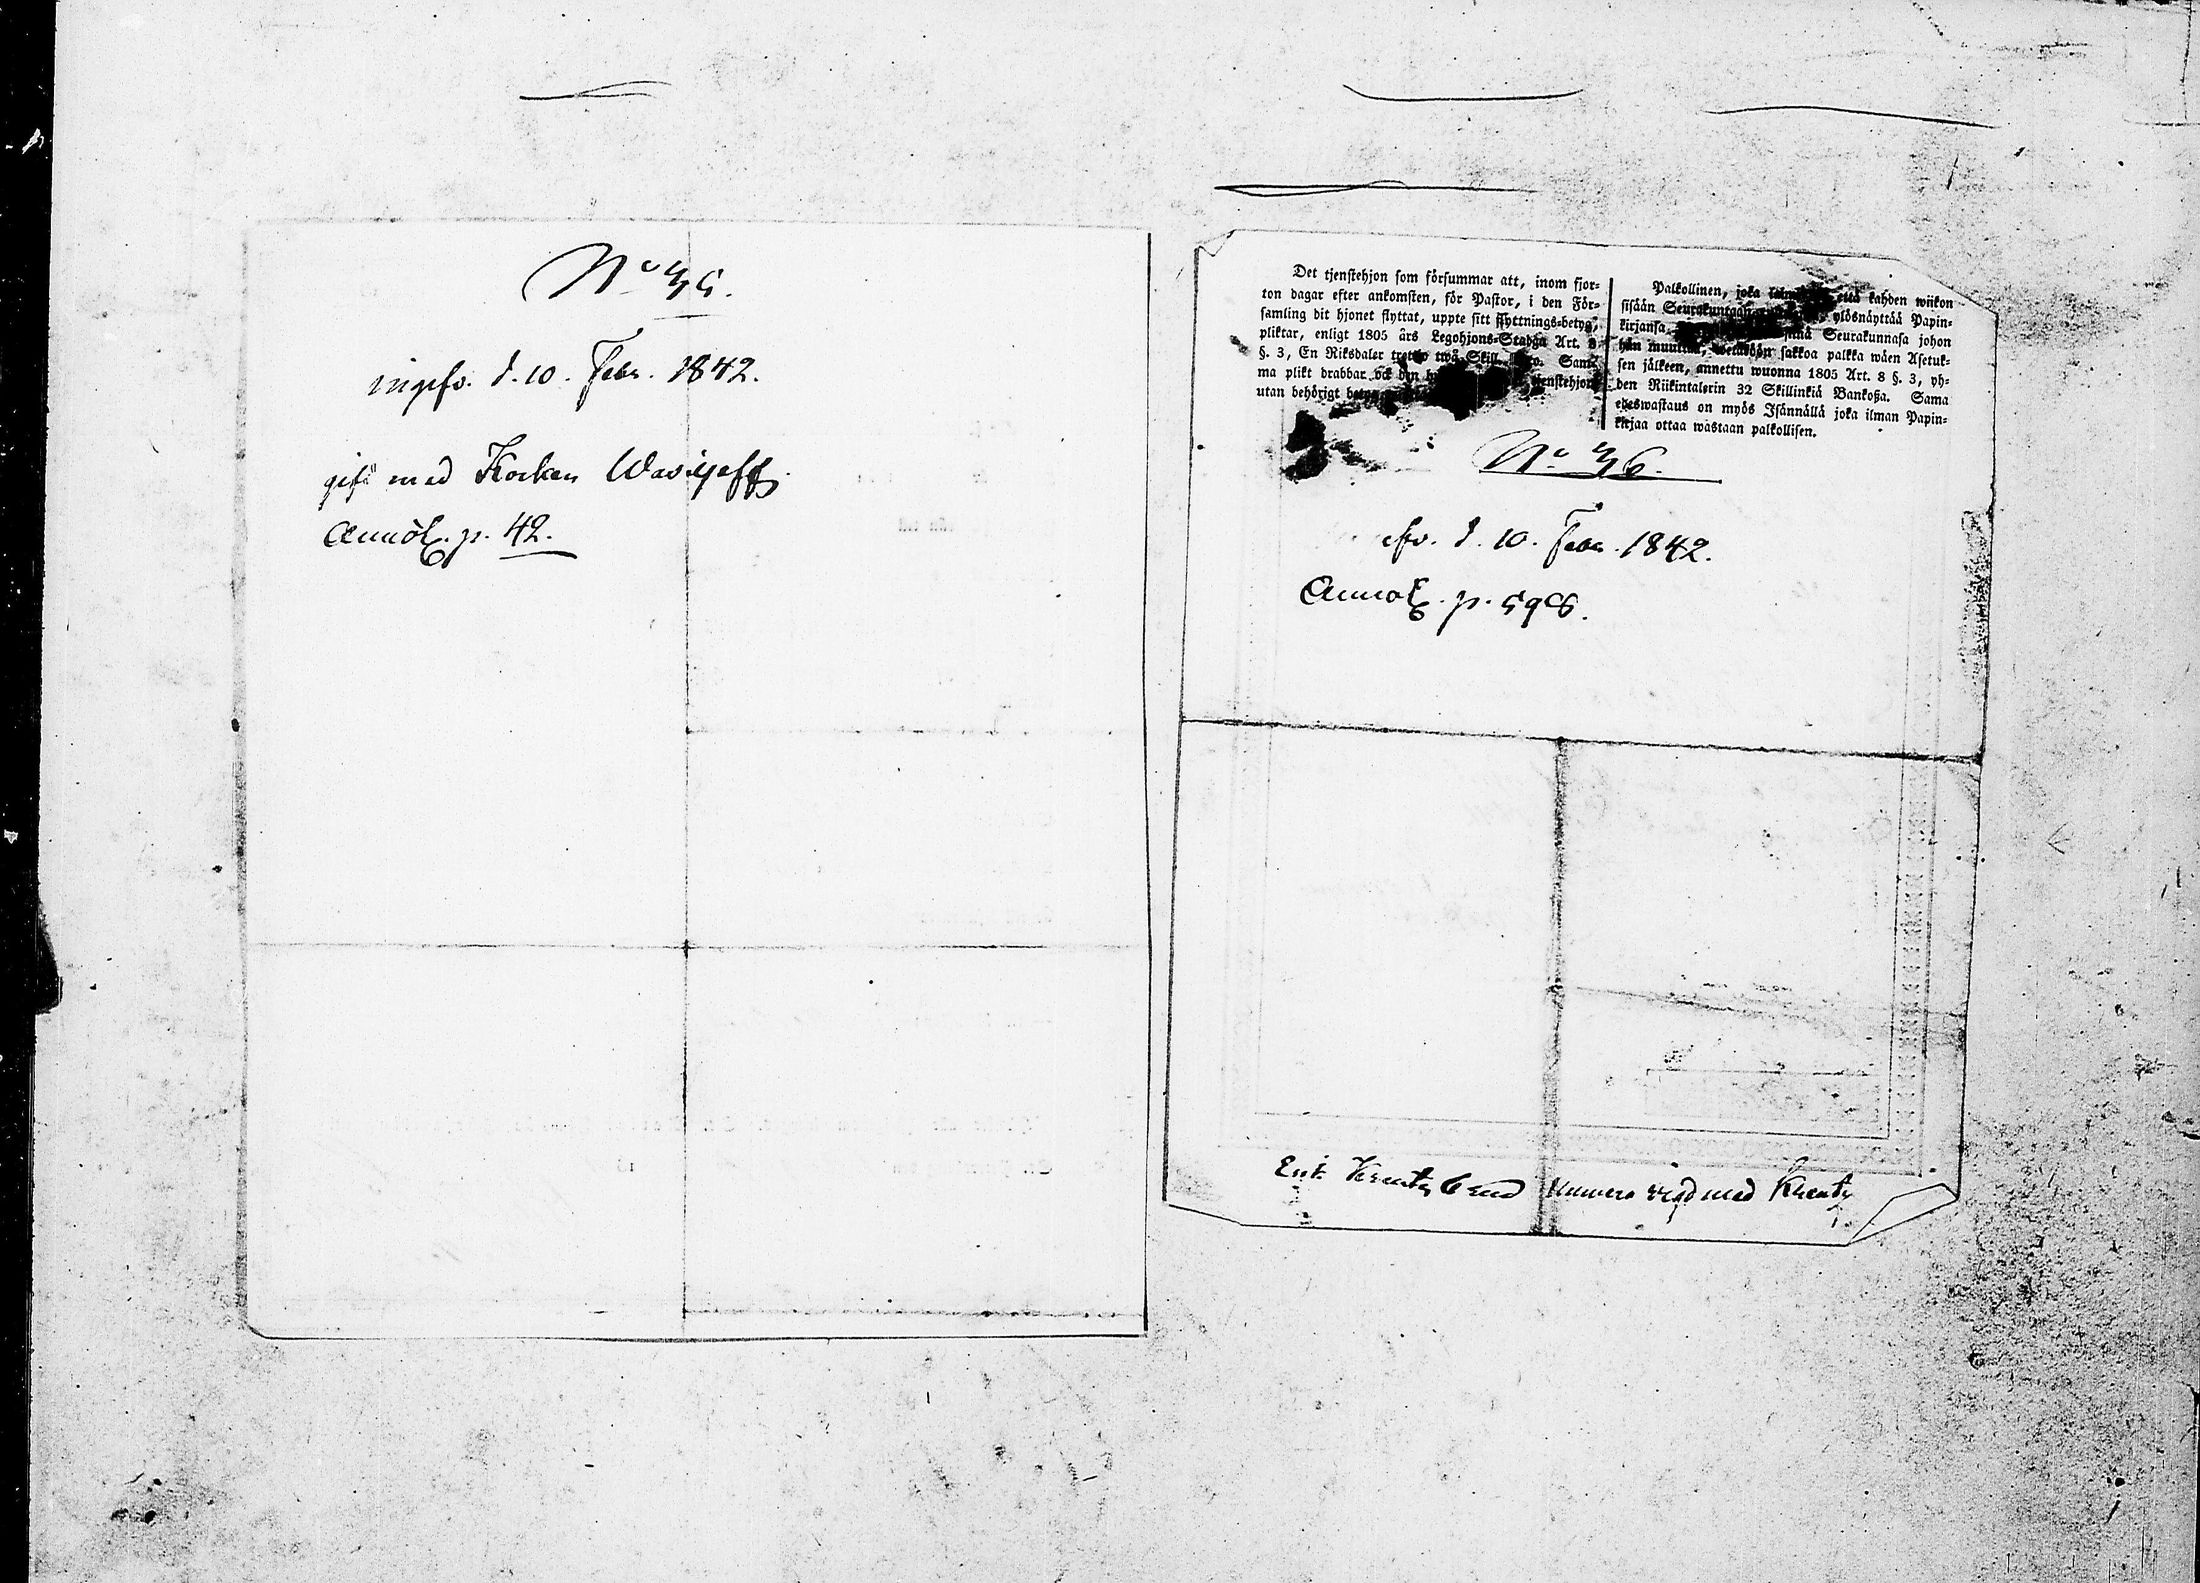 No 35.
ingifv. d. 10. Febr. 1842.
gift med Kocken Wasiljeff
Annot. p. 42.
Det tjenstehjon som försummar att, inom fjor-
ton dagar efter ankomsten, för Pastor, i den För-
samling dit hjonet flyttat, uppte sitt flyttnings-betyg,
pliktar, enligt 1805 års Legohjons-Stadga Art. 8
§. 3, En Riksdaler trettio två Skill. Sam-
ma plikt drabbar ock den tjenstehjon
utan behörigt
Palkollinen, joka että kahden wiikon
sisään Seurakuntaan ylösnäyttää Papin-
kirjansa, siinä Seurakunnasa johon
hän muuttaa, wetäköön sakkoa palkka wäen Asetuk-
sen jälkeen, annettu wuonna 1805 Art. 8 §. 3, yh-
den Riikintalerin 32 Skillinkiä Bankoßa. Sama
edeswastaus on myös Isännällä joka ilman Papin-
kirjaa ottaa wastaan palkollisen.
No 36.
d. 10. Febr. 1842.
Annot. p. 598.
med